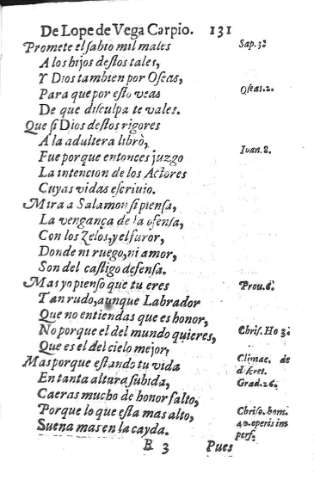 De Lope de Vega Carpio. 131
Promete el sabio mil males
Sap. 3.
A los hijos destos tales,
Y Dios tambien por Oseas,
Para que por esto veas
Oseas. 2.
De que disculpa te vales.
Que si Dios destos rigores
A la adultera librò,
Fue porque entonces juzgo
Ioan. 8.
La intencion de los Actores
Cuyas vidas escriuio.
Mira a Salamon si piensa,
La vengança de la ofensa,
Con los Zelos, y el furor,
Donde ni ruego, ni amor,
Son del castigo defensa.
Mas yo pienso que tu eres
Prou. 6.
Tan rudo, aunque Labrador
Que no entiendas que es honor,
No porque el del mundo quieres,
Chris. Ho 3.
Que es el del cielo mejor,
Mas porque estando tu vida
Climac. de
discret.
En tanta altura subida,
Grad. 26.
Caeras mucho de honor falto,
Porque lo que esta mas alto,
Chriso. hom.
40. operis im
Suena mas en la cayda.
perf.
B 3 Pues